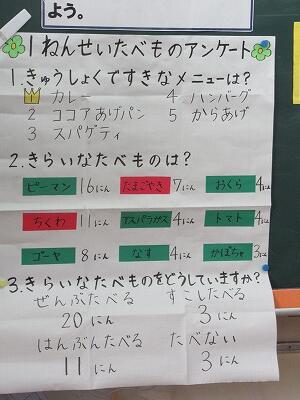 よう。
1ねんせいたべものアンケート
1.きゅうしょくですきなメニューは?
カレー 4 ハンバーグ
2 ココアあげパン 5 からあげ
3 スパゲティ
2.きらいなたべものは?
ピーマン 16にん たまごやき 7にん おくら 4にん
ちくわ 11にん アスパラガス 4にん トマト 4にん
ゴーヤ 8にん なす 4にん かぼちゃ 3にん
3.きらいなたべものをどうしていますか?
ぜんぶたべる すこしたべる
20にん 3にん
はんぶんたべる たべない
11にん 3にん